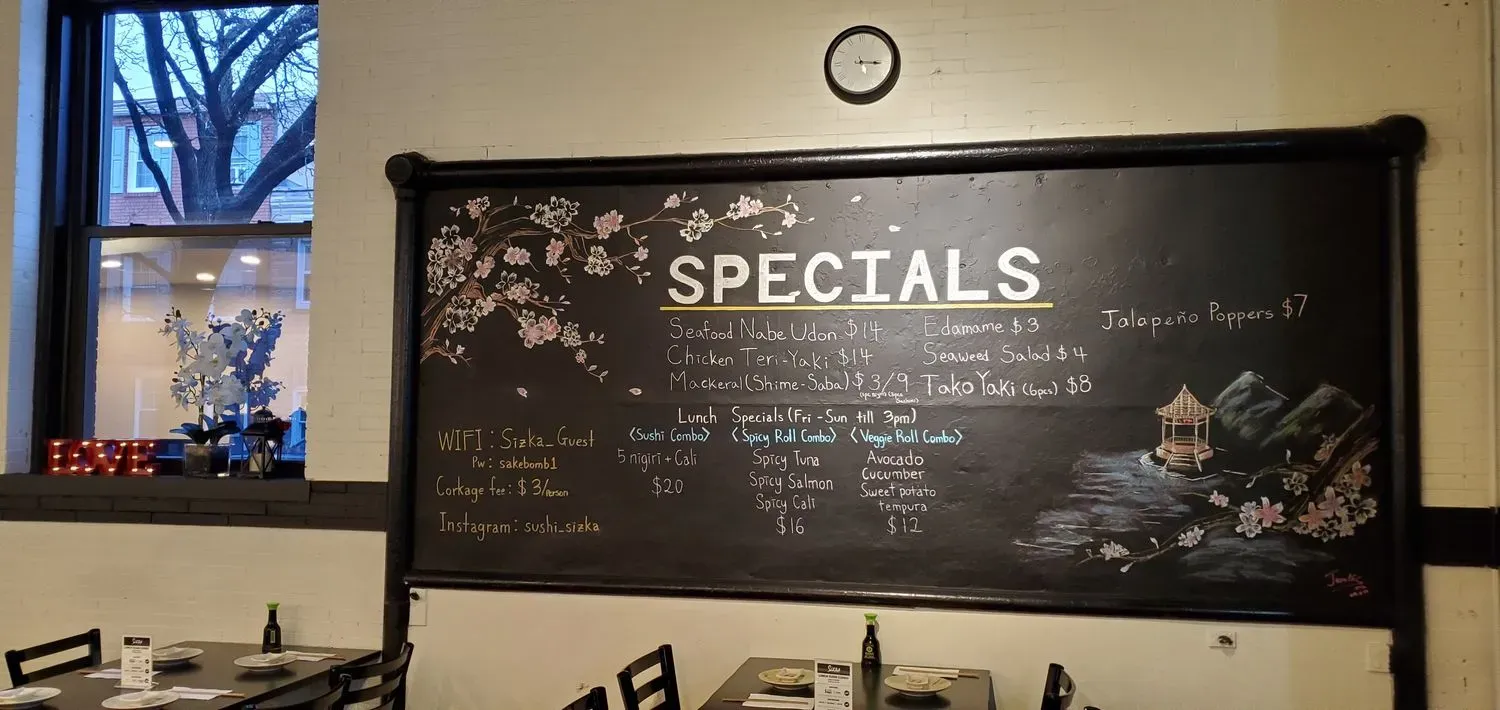 SPECIALS
Seafood Nabe Udon $14
Chicken Teri-Yaki $14
Mackeral (Shime-Saba) $3/9
Edamame $3
Seaweed Salad $4
Tako Yaki (6pcs) $8
Jalapeño Poppers $7
Lunch Specials (Fri - Sun till 3pm)
<Sushi Combo>
5 nigiri + Cali
$20
<Spicy Roll Combo>
Spicy Tuna
Spicy Salmon
Spicy Cali
$16
<Veggie Roll Combo>
Avocado
Cucumber
Sweet potato
tempura
$12
WIFI: Sizka_Guest
Pw: sakebomb1
Corkage fee: $3/Person
Instagram: sushi_sizka
LOVE